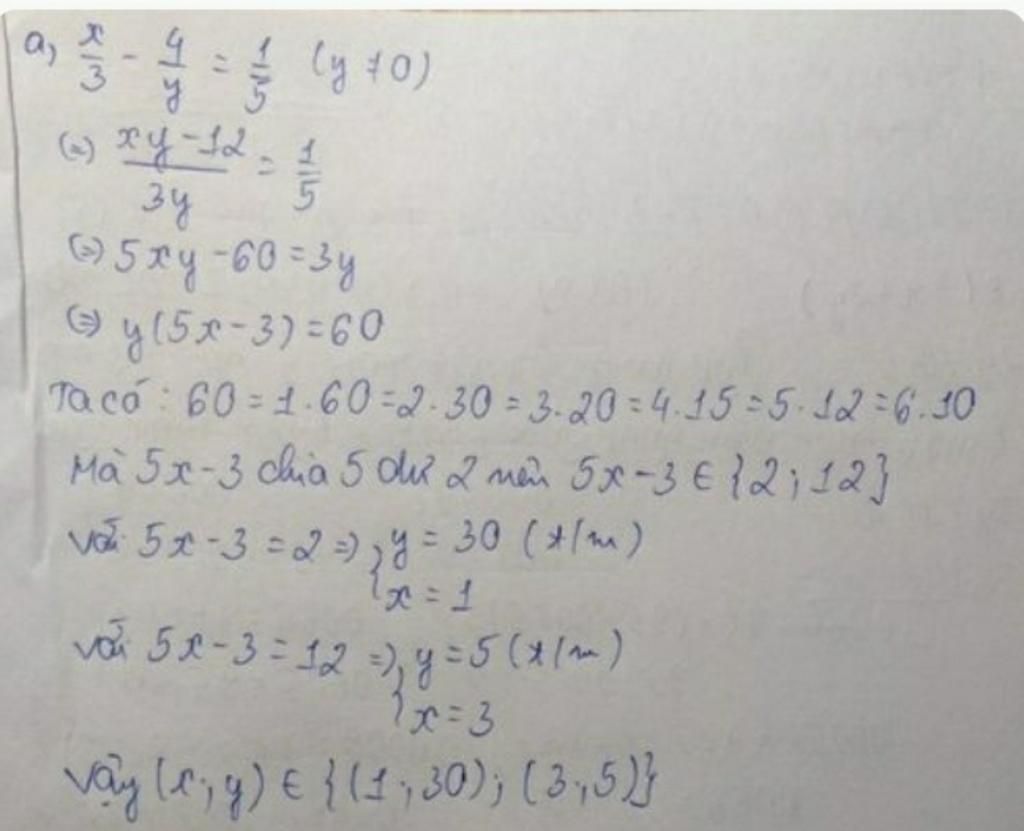 a, x/3 - 4/y = 1/5 (y ≠ 0)
(=) (xy - 12)/3y = 1/5
(=) 5xy - 60 = 3y
(=) y(5x - 3) = 60
Ta có : 60 = 1.60 = 2.30 = 3.20 = 4.15 = 5.12 = 6.10
Mà 5x - 3 chia 5 dư 2 nên 5x - 3 ∈ {2 ; 12}
với 5x - 3 = 2 => { y = 30 (t/m)
x = 1
với 5x - 3 = 12 => { y = 5 (t/m)
x = 3
vậy (x ; y) ∈ {(1 ; 30) ; (3 ; 5)}